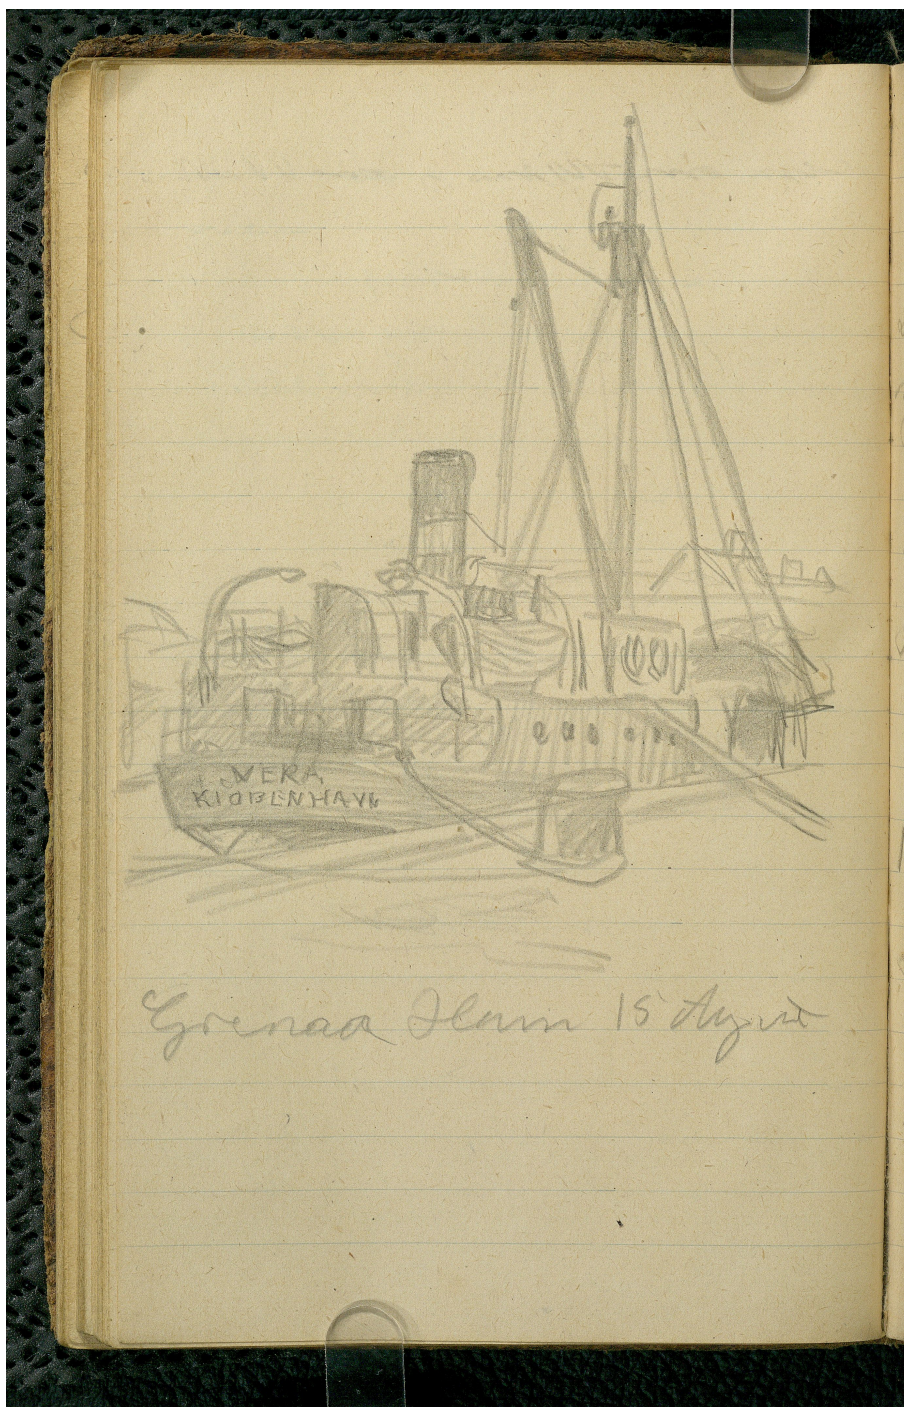 VERA
KIOBENHAVN
Grenaa Havn 15 August